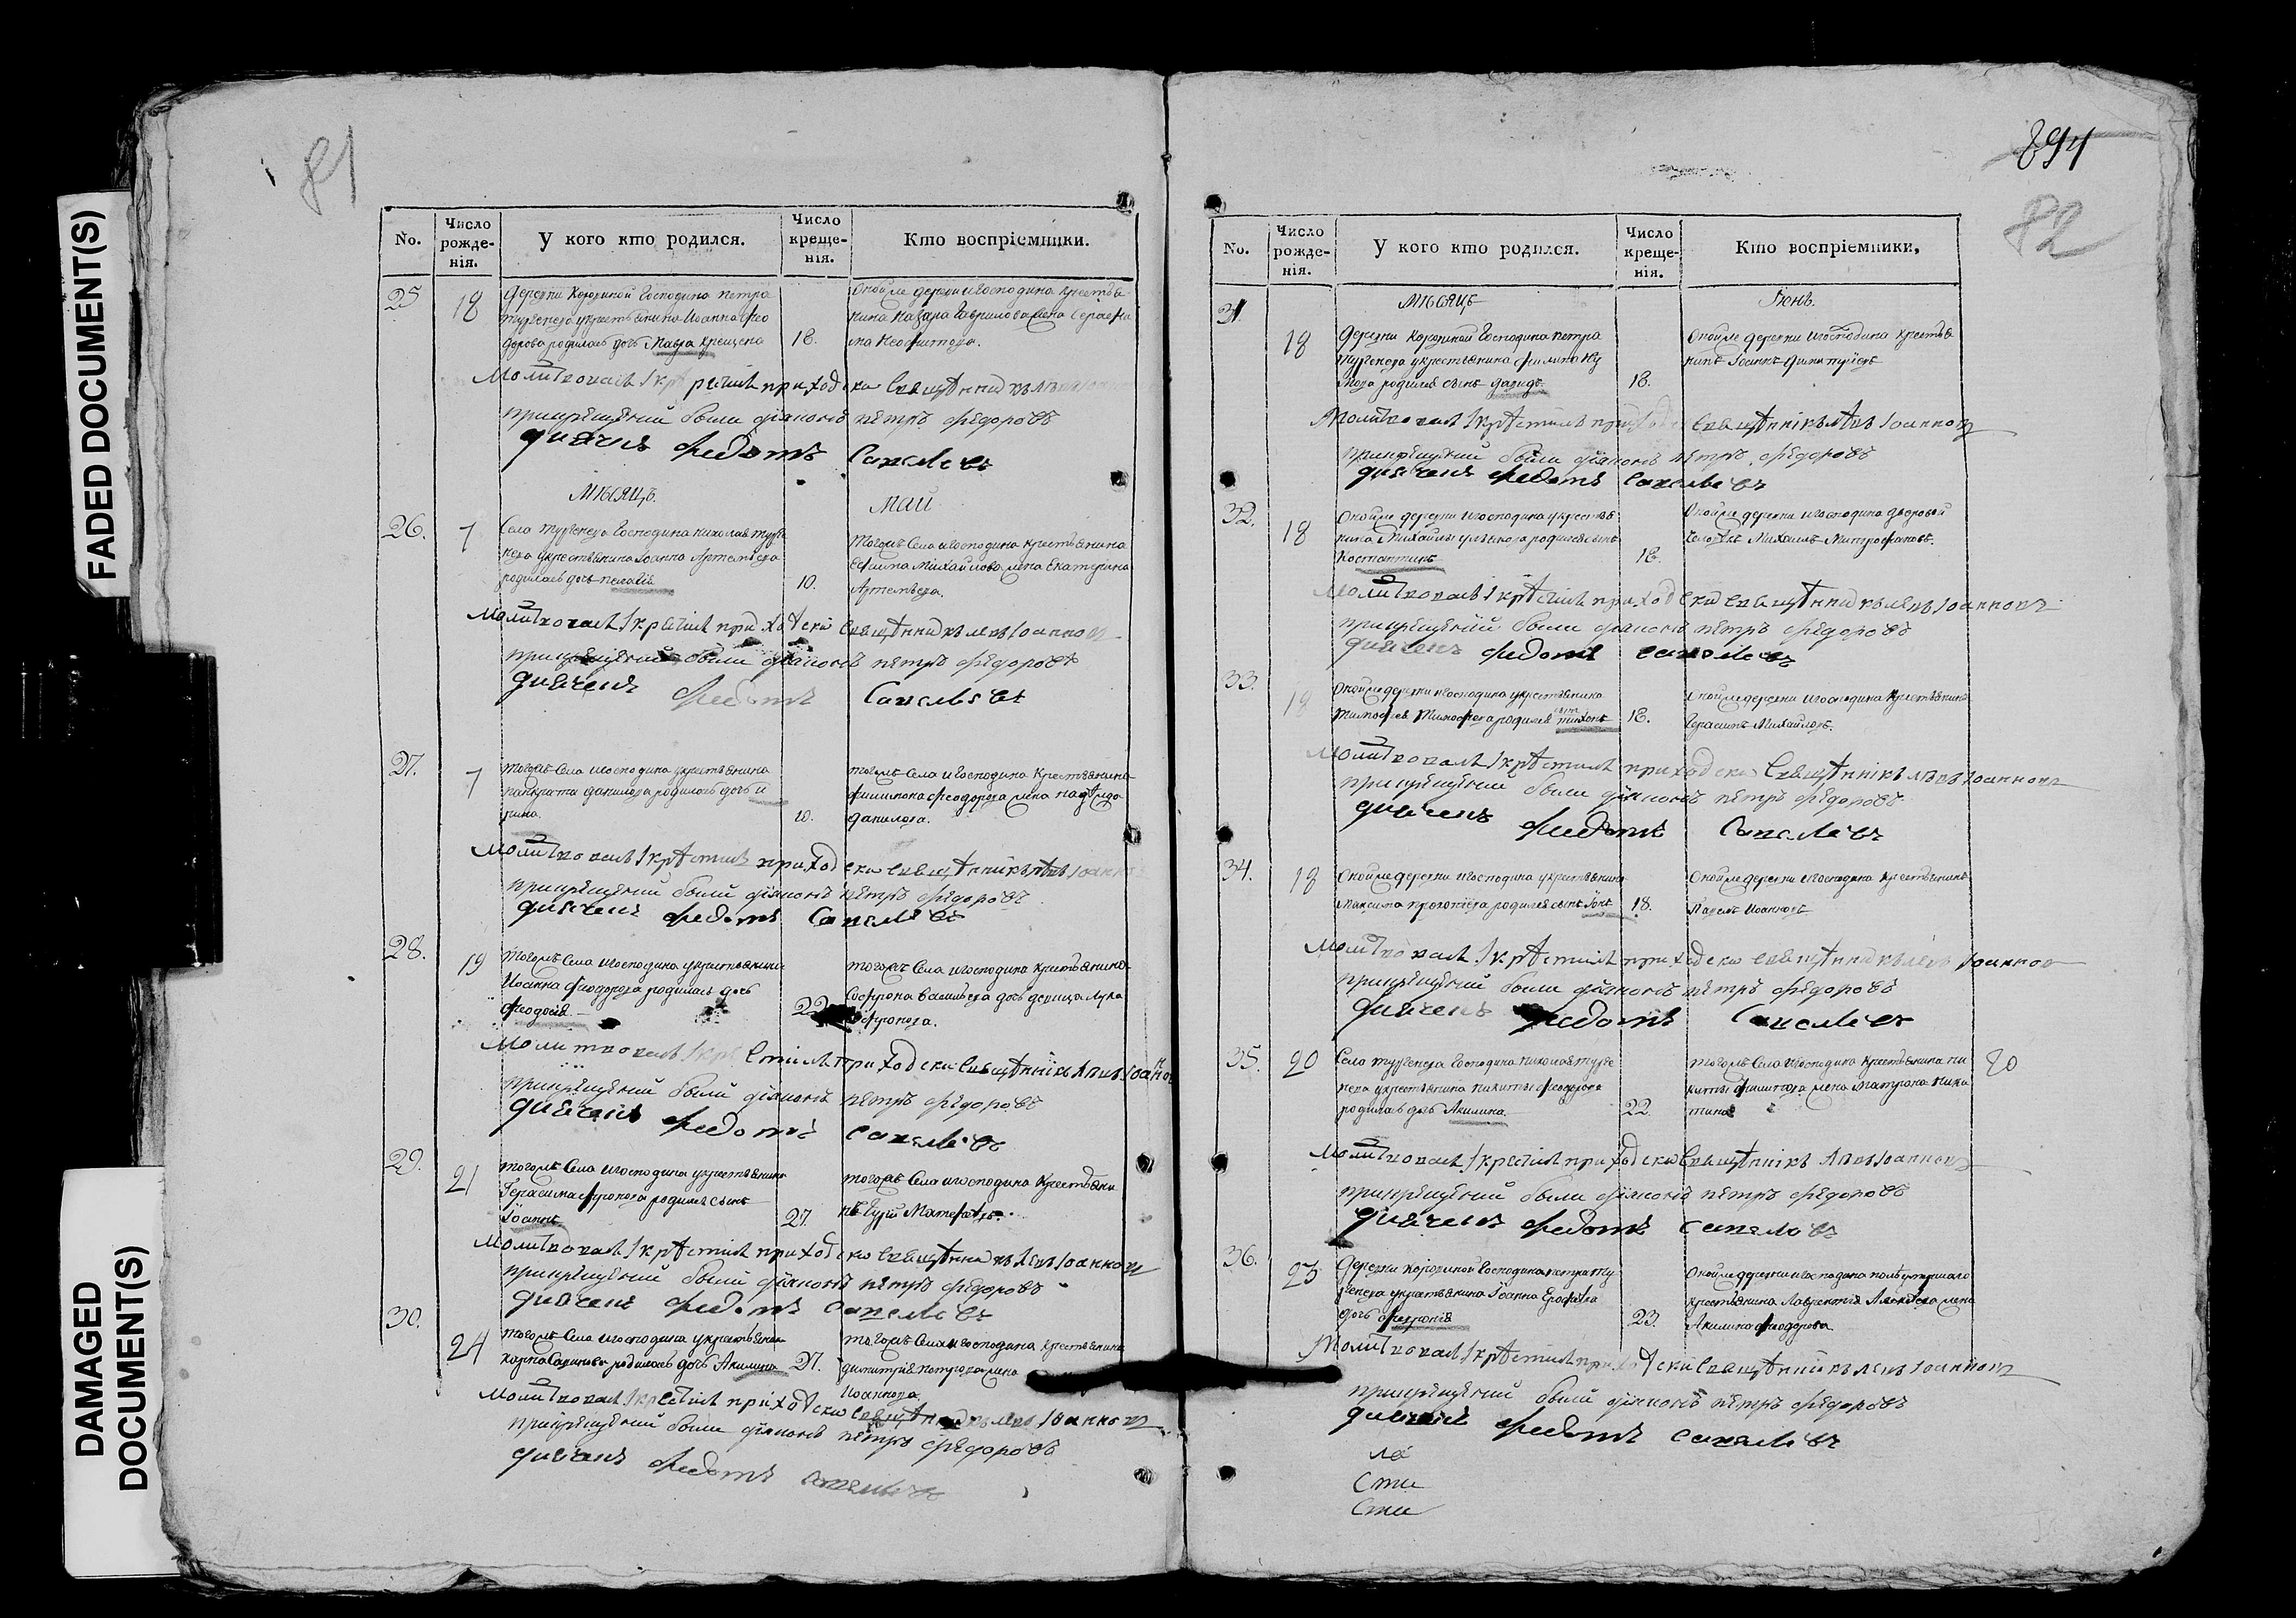 FADED DOCUMENT(S)
DAMAGED
DOCUMENT(S)
81
No.
Число
рожде-
нія.
У кого кто родился.
Число
креще-
нія.
Кто воспріемники.
25
18
деревни
Господина Петра
Тургенева Иоанна Фео
дорова родилась дочь Мавра крещена
18.
оной же деревни и господина крестья
нина Назара Гаврилова жена
Молитвовалъ и крестилъ приходски священникъ Левъ
при крещении были диаконъ петръ федоровъ
дьячекъ федотъ Савельевъ
мѣсяцъ.
май
26.
7
Села Тургенева Господина Николая Турге
нева у крестьянина Иоанна Артемьева
родилась дочь Пелагия
10.
того жъ села и господина крестьянина
Ефима Михайлова жена Екатерина
Артемьева.
Молитвовалъ и крестилъ приходски священникъ левъ Иоанновъ
при крещении были диаконъ петръ федоровъ
дьячекъ федотъ Савельевъ
27.
7
того жъ села и господина у крестьянина
Панкрата Данилова родилась дочь И
рина.
10.
того жъ села и господина крестьянина
Филимона Феодорова жена
Данилова.
Молитвовалъ и крестилъ приходски священникъ левъ Иоанновъ
при крещении были диаконъ петръ федоровъ
дьячекъ федотъ Савельевъ
28.
19
того жъ села и господина у крестьянина
Иоанна Феодорова родилась дочь
Феодосия
22
того жъ села и господина крестьянина
Софрона Васильева дочь девица
Софронова.
Молитвовалъ и крестилъ приходски священникъ левъ Иоанновъ
при крещении были диаконъ петръ федоровъ
дьячекъ федотъ савельевъ
29.
21
того жъ села и господина у крестьянина
Герасима родился сынъ
Иоаннъ
27.
того жъ села и господина крестьяни
нъ
Молитвовалъ и крестилъ приходски священникъ левъ Иоанновъ
при крещении были диаконъ петръ федоровъ
дьячекъ федотъ савельевъ
30.
24
того жъ села и господина у крестьянина
Карпа родилась дочь Акилина
27.
того жъ села и господина крестьянина
Димитрия Петрова жена
Иоаннова
Молитвовалъ и крестилъ приходски священникъ левъ Иоанновъ
при крещении были диаконъ петръ федоровъ
дьячекъ федотъ савельевъ
894
82
No.
Число
рожде-
нія.
У кого кто родился.
Число
креще-
нія.
Кто воспріемники,
31.
мѣсяцъ
Іюнь.
18
деревни Господина Петра
Тургенева у крестьянина Филипа Ку
родился сынъ Давидъ
18.
оной же деревни и господина крестья
нинъ Іоаннъ Димитриевъ
Молитвовалъ и крестилъ приходски священникъ левъ Иоанновъ
при крещении были диаконъ петръ федоровъ
дьячекъ федотъ савельевъ
32.
18
оной же деревни и господина у крестья
нина Михайлы родился сынъ
Костантинъ
18.
оной же деревни и господина дворовой
человекъ Михаилъ Митрофановъ.
Молитвовалъ и крестилъ приходски священникъ левъ Иоанновъ
при крещении были диаконъ петръ федоровъ
дьячекъ федотъ савельевъ
33.
18
оной же деревни и господина у крестьянина
Тимофея Тимофеева родился сынъ Тихонъ
18.
оной же деревни и господина крестьянинъ
Герасимъ Михайловъ.
Молитвовалъ и крестилъ приходски священникъ левъ Иоанновъ
при крещении были диаконъ петръ федоровъ
дьячекъ федотъ Савельевъ
34.
18
оной же деревни и господина у крестьянина
Максима Прокопиева родился сынъ
18.
оной же деревни и господина крестьянинъ
Павелъ Иоанновъ
Молитвовалъ и крестилъ приходски священникъ левъ Иоанновъ
при крещении были диаконъ петръ федоровъ
дьячекъ федотъ Савельевъ
35.
20
Села Тургенева Господина Николая Турге
нева у крестьянина Никиты Феодорова
родилась дочь Акилина
22.
того жъ села и господина крестьянина Ни
киты Филипова жена Матрона Ники
тина
20
Молитвовалъ и крестилъ приходски священникъ левъ Иоанновъ
при крещении были диаконъ петръ федоровъ
дьячекъ федотъ савельевъ
36.
23
деревни Господина Петра Ту
ргенева у крестьянина Іоанна Ерофеева
дочь Феврония
23.
оной же деревни и господина
крестьянина Лаврентия жена
Акилина Феодорова
Молитвовалъ и крестилъ приходски священникъ левъ Иоанновъ
при крещении были диаконъ петръ федоровъ
дьячекъ федотъ савельевъ
Сти
Сти